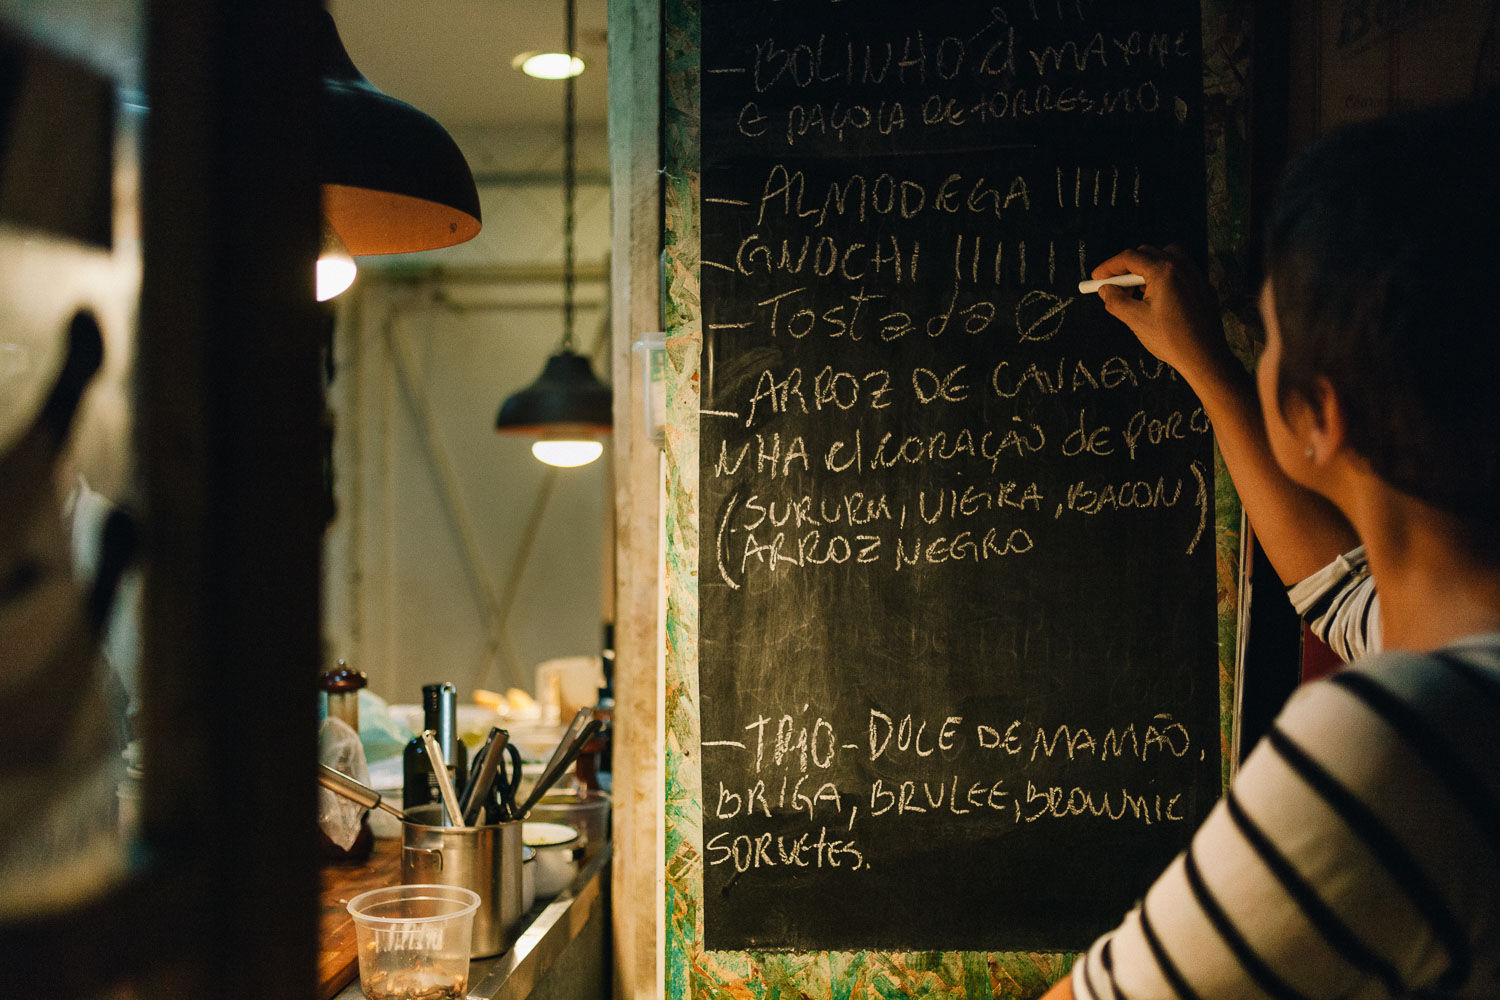 - BOLINHO d
E PAÇOCA DE TORRESMO,
- ALMODEGA IIIII
- GNOCHI IIIIIII
- Tostada Ø
- ARROZ DE CAVAQUI
NHA c/ CORAÇÃO de PORCO
(SURURU, VIEIRA, BACON)
(ARROZ NEGRO
- TRIO - DOCE DE MAMÃO,
BRIGA, BRULEE, BROWNIE
SORVETES.